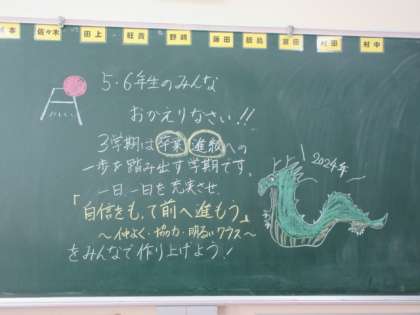 佐々木
田上
野崎
藤田
村中
5・6年生のみんな
おかえりなさい!!
3学期は卒業 進級への
一歩を踏み出す学期です。
一日一日を充実させ、
「自信をもって前へ進もう」
〜仲よく・協力・明るいクラス〜
をみんなで作り上げよう!
2024年〜